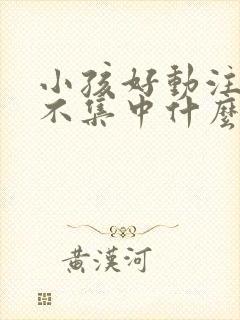 小孩好動注
不集中什麼
黃漢河